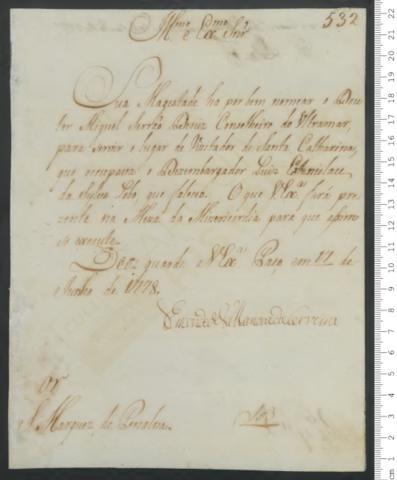 532
Ill.mo e Ex.mo Snr
Sua Magestade ha por bem nomear o Dou
tor Miguel Serrão Diniz Conselheiro do Ultramar,
para servir o lugar de Visitador de Santa Catharina,
que occupava o Dezembargador Luiz Estanislao
da Sylva Lobo, que faleceo. O que V.Ex.a fará pre
zente na Meza da Misericordia para que assim
se execute.
Deos guarde a V.Ex.a Paço em 17 de
Junho de 1778.
Visconde de Villa nova da Cerveira
S.r Marquez de Penalva.